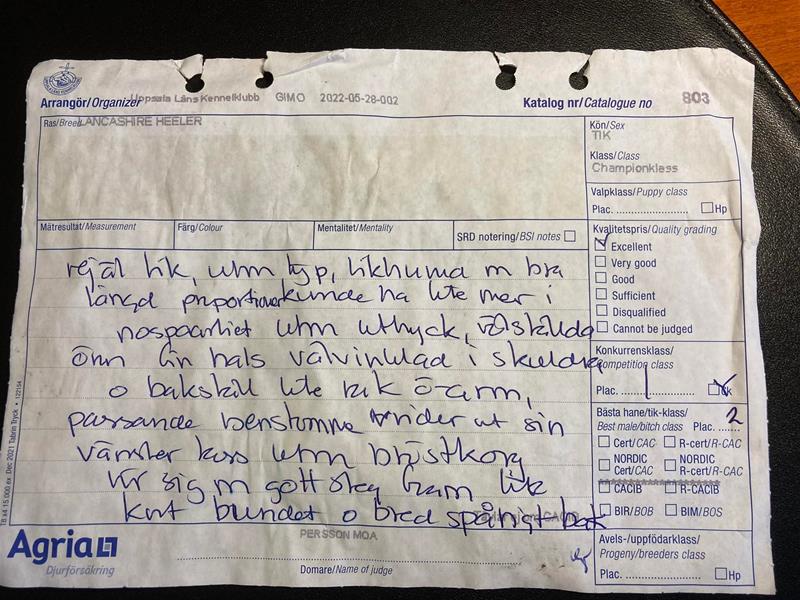 Arrangör/Organizer Uppsala Läns Kennelklubb GIMO 2022-05-28-002
Katalog nr/Catalogue no 803
Ras/Breed LANCASHIRE HEELER
Kön/Sex
TIK
Klass/Class
Championklass
Valpklass/Puppy class
Plac. Hp
Mätresultat/Measurement
Färg/Colour
Mentalitet/Mentality
SRD notering/BSI notes
Kvalitetspris/Quality grading
Excellent
Very good
Good
Sufficient
Disqualified
Cannot be judged
rejäl tik, utm typ, tikhuvud m bra
längd proportioner kunde ha lite mer i
nospartiet utm uttryck, välställda
öron fin hals välvinklad i skuldra
o bakställ lite rak ö-arm,
passande benstomme vrider ut sin
vänster utm bröstkorg
rör sig m gott steg fram lite
kort bundet o bred spårigt bak
Konkurrensklass/
Competition class
Plac. 1 Ck
Bästa hane/tik-klass/
Best male/bitch class Plac. 2
Cert/CAC R-cert/R-CAC
NORDIC NORDIC
Cert/CAC R-cert/R-CAC
CACIB R-CACIB
BIR/BOB BIM/BOS
Avels-/uppfödarklass/
Progeny/breeders class
Plac. Hp
PERSSON MOA
Domare/Name of judge
Agria
Djurförsäkring